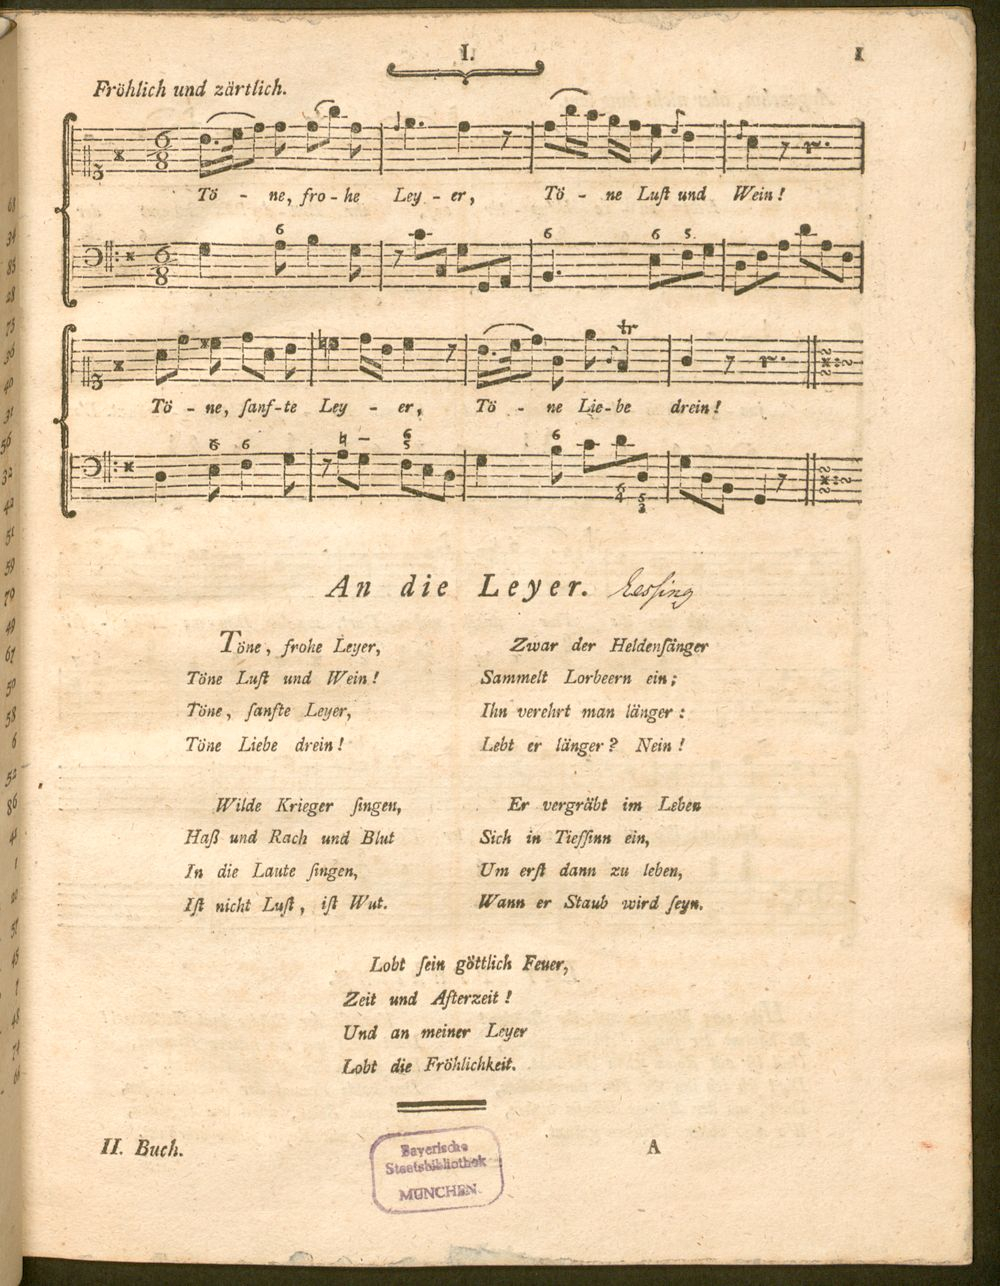 I.
1
Fröhlich und zärtlich.
Tö - ne, fro - he Ley - er, Tö - ne Luſt und Wein!
6 6 6 5
Tö - ne, ſanf-te Ley - er, Tö - ne Lie-be drein!
6 6 6 5 6 6 4 5 3
An die Leyer. Lessing
Töne, frohe Leyer,
Töne Luſt und Wein!
Töne, ſanfte Leyer,
Töne Liebe drein!
Wilde Krieger ſingen,
Haß und Rach und Blut
In die Laute ſingen,
Iſt nicht Luſt, iſt Wut.
Zwar der Heldenſänger
Sammelt Lorbeern ein;
Ihn verehrt man länger:
Lebt er länger? Nein!
Er vergräbt im Leben
Sich in Tiefſinn ein,
Um erſt dann zu leben,
Wann er Staub wird ſeyn.
Lobt ſein göttlich Feuer,
Zeit und Afterzeit!
Und an meiner Leyer
Lobt die Fröhlichkeit.
II. Buch.
A
Bayerische
Staatsbibliothek
MÜNCHEN